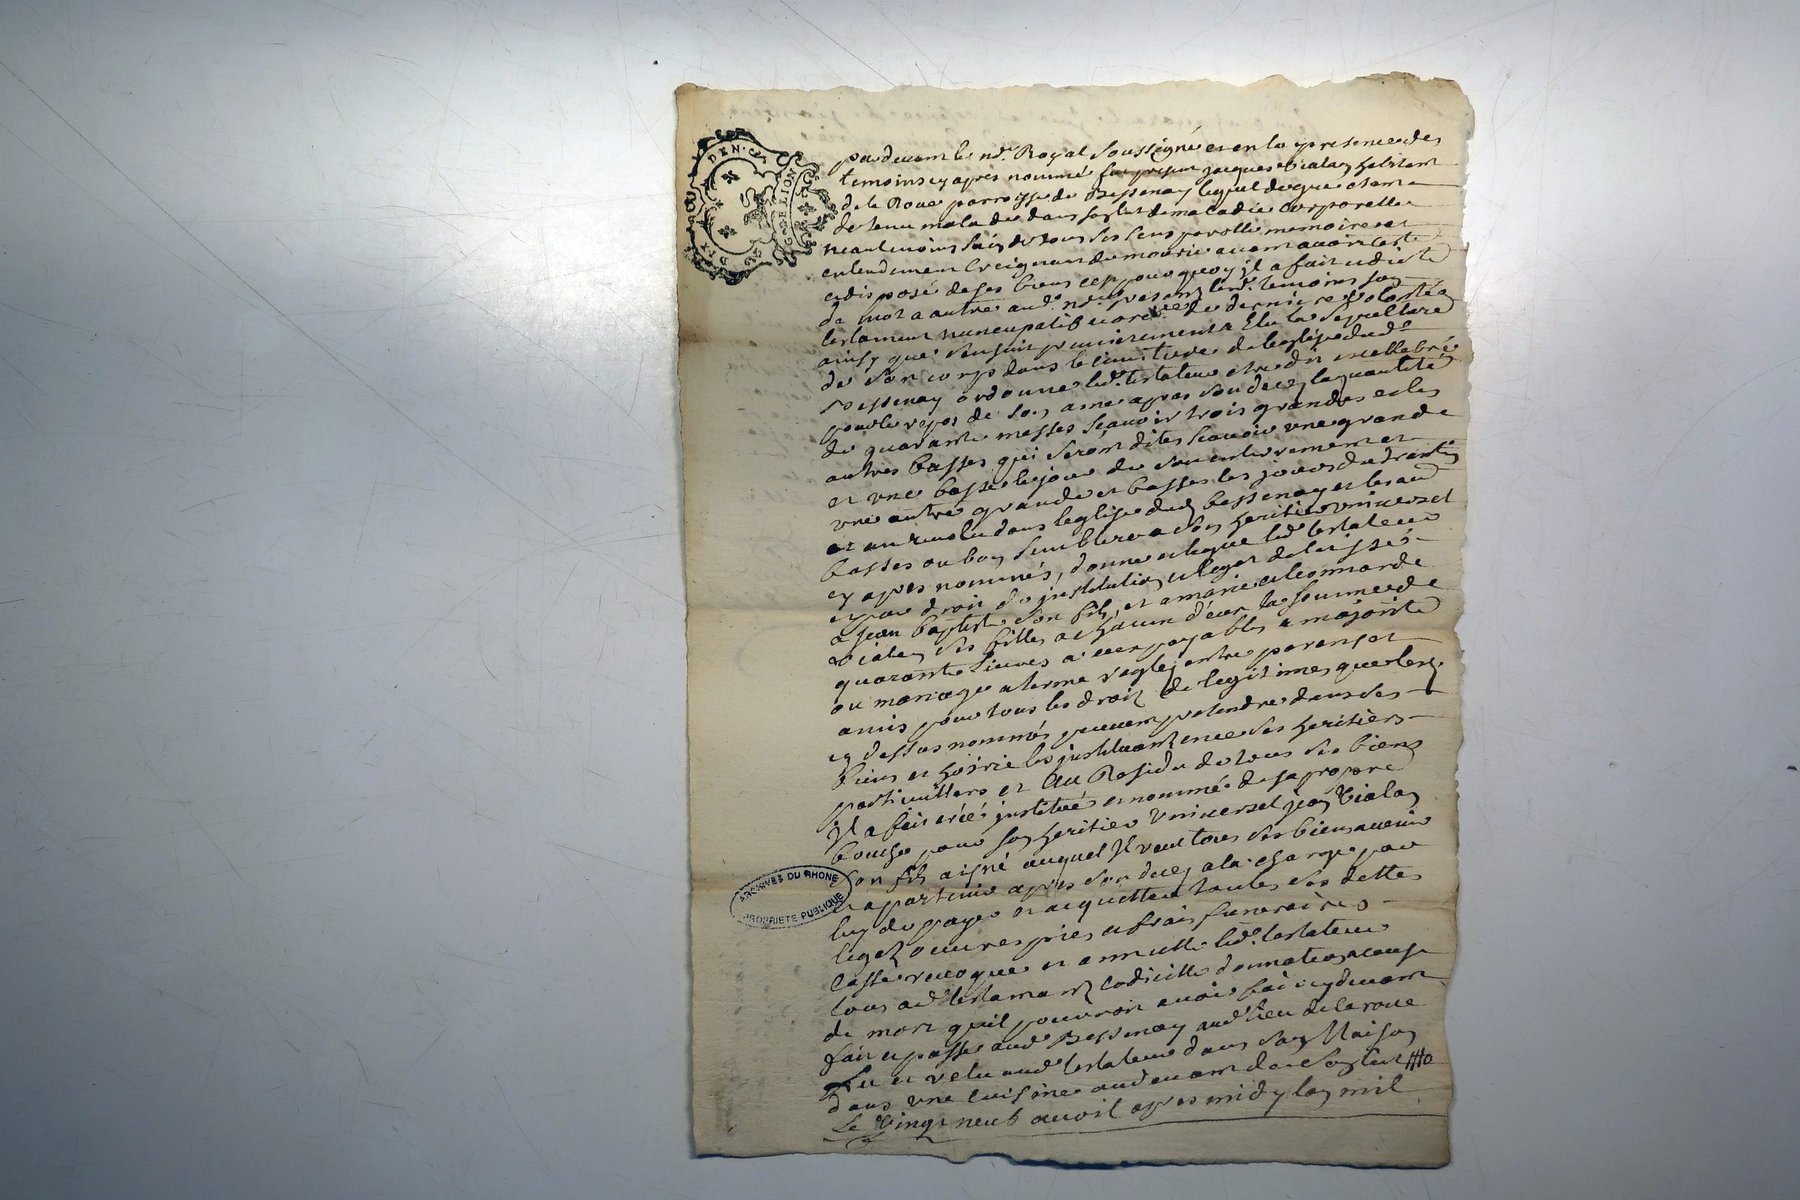 DEN.
G. DE LION
pardevant le no.re Royal soussigné et en la presence des
temoins cy apres nommé fut present jacques vialay habitant
de la Roue parroisse de Bessenay lequel de gre etant
detenu malade dans son lict de maladie corporelle
neantmoins sain de tous ses sens parolle memoire et
entendement Creignant de mourir avant avoir testé
et disposé de ses biens cest pourquoy il a fait et dicté
de mot a autre aud. no.re presents lesd. temoins son
testament nuncupatif et ord.re de derniere volonté
ainsy que s'ensuit premierement a Elu la sepulture
de son corps dans le cimetiere de leglise dud.
Bessenay ordonne led. testateur etre dit et cellebré
pour le repos de son ame apres son deces la quantité
de quarante messes scavoir trois grandes et les
autres basses qui seront dites scavoir une grande
et une basse le jour de son enterrement et
une autre grande et basse les jours du trantin
et au revolu dans leglise dud. bessenay et les
basses ou bon semblera a son heritier universel
cy apres nommés, donne et legue led. testateur
et par droit d'institution et leget delaissé
a jean baptiste son fils, et a marie et leonnarde
vialay ses filles a chacun d'eux la somme de
quarante livres a eux payables a majorité
ou mariage a terme reglé entre parens et
amis pour tous les droits de legitimes que les
cy dessus nommés peuvent pretendre dans ses
biens et hoirie les instituant en ce ses heritiers
particulliers et Au Residu de tous ses biens
Il a fait créé institué et nommé de sa propre
bouche pour son heritier universel jean Vialay
son fils aisné auquel Il veut tous ses biens avenir
et apartenir apres son deces a la charge par
luy de payer et acquitter toutes ses dettes
legets oeuvres pies et frais funeraires
Casse revoque et annulle led. testateur
tous autres testaments codicille donnation a cause
de mort quil pourroit avoir fait cy devant
fait et passé aud. Bessenay aud. lieu de la roue
Lu et relu aud. testateur dans sa Maison
dans une cuisine au devant de son lict
Le Vingt neuf avril apres midy lan mil
ARCHIVES DU RHONE
PROPRIETE PUBLIQUE